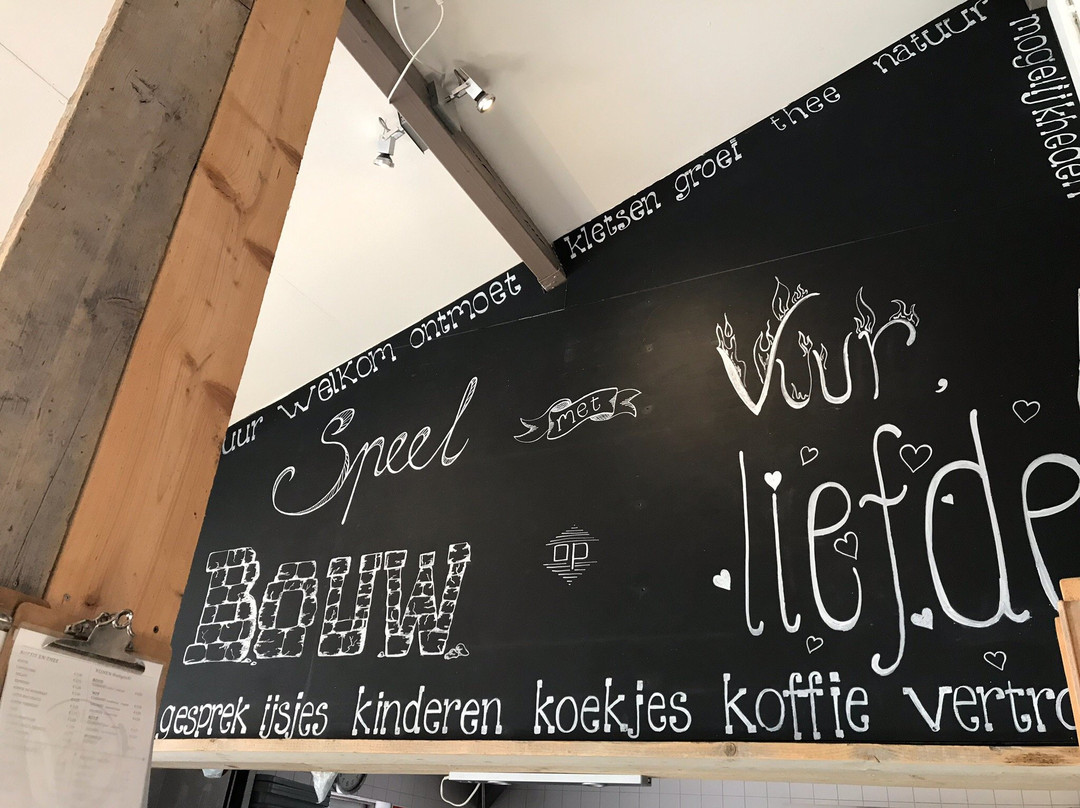 uur welkom ontmoet kletsen groei thee natuur
mogelijkheden
Speel met Vuur,
Bouw op liefde
gesprek ijsjes kinderen koekjes koffie vertro